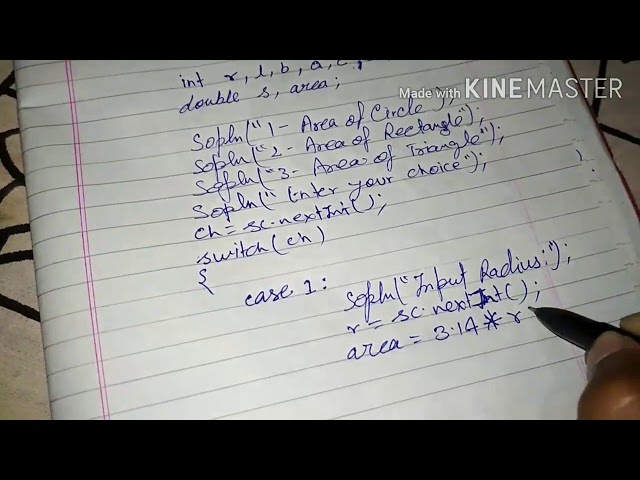 Made with KINEMASTER
int r, l, b, a, c,
double s, area;
Sopln("1- Area of Circle");
Sopln("2- Area of Rectangle");
Sopln("3- Area of Triangle");
Sopln("Enter your choice");
ch = sc.nextInt();
switch(ch)
{
case 1: Sopln("Input Radius:");
r = sc.nextInt();
area = 3.14 * r